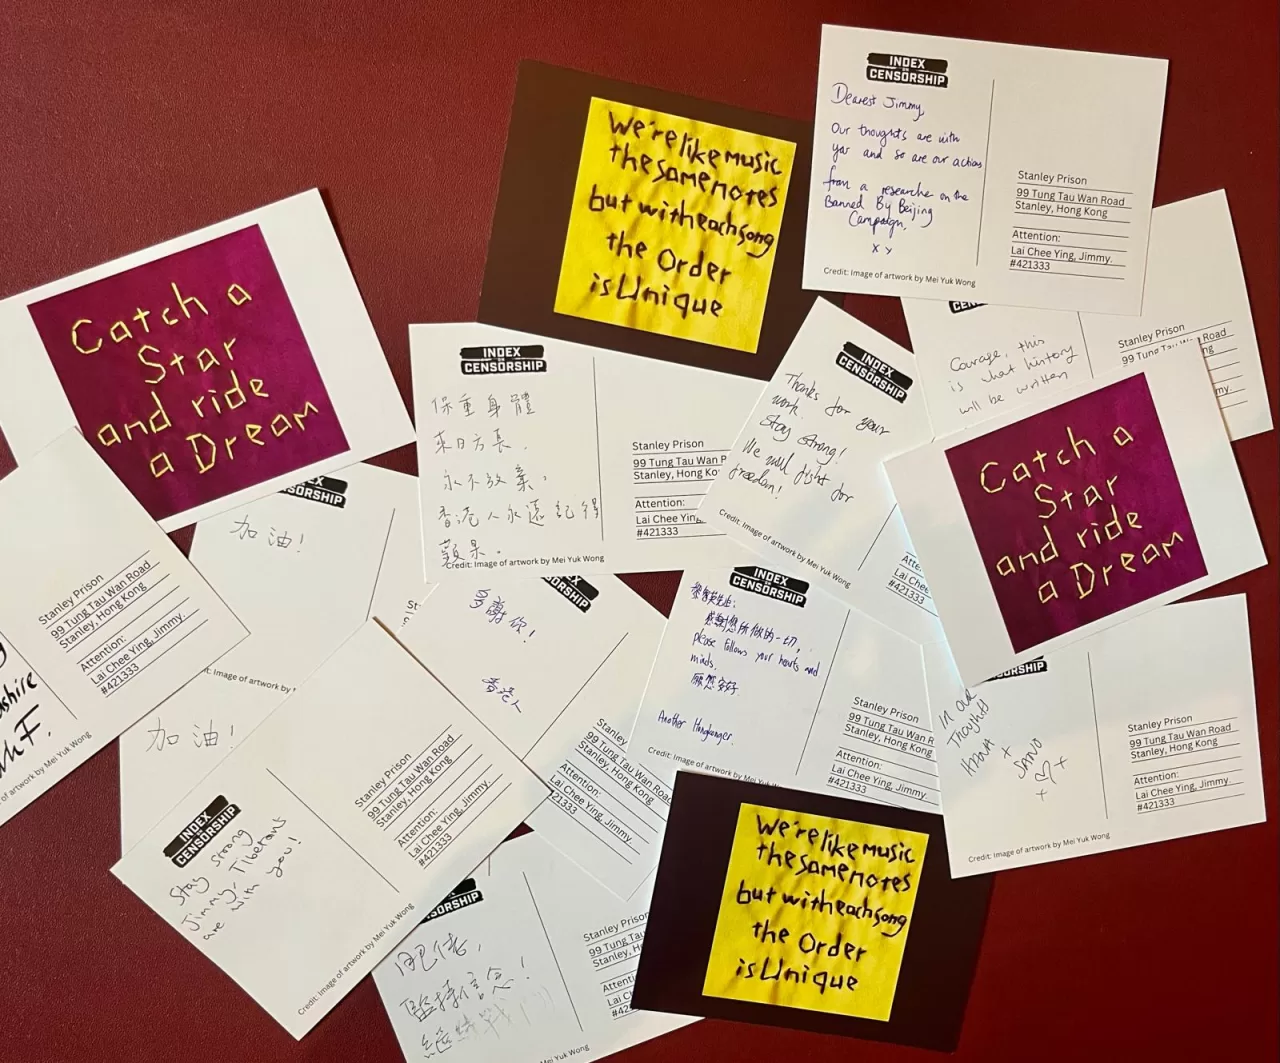 We're like music
the same notes
but with each song
the Order
is Unique
INDEX
ON
CENSORSHIP
Dearest Jimmy,
Our thoughts are with
you and so are our actions
from a researcher on the
Banned By Beijing
Campaign.
x x
Stanley Prison
99 Tung Tau Wan Road
Stanley, Hong Kong
Attention:
Lai Chee Ying, Jimmy.
#421333
Credit: Image of artwork by Mei Yuk Wong
Catch a
Star
and ride
a Dream
INDEX
ON
CENSORSHIP
保重身體
來日方長.
永不放棄。
香港人永遠記得
蘋果.
Stanley Prison
99 Tung Tau Wan R
Stanley, Hong Ko
Attention:
Lai Chee Ying
#421333
Credit: Image of artwork by Mei Yuk Wong
INDEX
ON
CENSORSHIP
Thanks for your
work.
Stay strong!
We will fight for
freedom!
Credit: Image of artwork by Mei Yuk Wong
Atte
Lai C
#421
Courage, this
is what history
will be written
Stanley Prison
99 Tung Ta
Catch a
Star
and ride
a Dream
CENSORSHIP
加油!
Stanley Prison
99 Tung Tau Wan Road
Stanley, Hong Kong
Attention:
Lai Chee Ying, Jimmy.
#421333
shire
F.
of artwork by Mei Yuk Wong
Image of artwork by
加油!
多謝你!
香港人
Stanley Prison
99 Tung Tau Wan Road
Stanley, Hong Kong
Attention:
Lai Chee Ying, Jimmy.
INDEX
ON
CENSORSHIP
黎智英先生:
感謝您所做的一切,
please follows your hearts and
minds.
願您安好
Another Hongkonger.
Stanley Prison
99 Tung Tau Wan R
Stanley, Hong Kong
Attention:
Lai Chee Ying, Jimmy.
#421333
Credit: Image of artwork by Mei
In our
Thoughts
+
Stanley Prison
99 Tung Tau Wan Road
Stanley, Hong Kong
Attention:
Lai Chee Ying, Jimmy.
#421333
Credit: Image of artwork by Mei Yuk Wong
INDEX
ON
CENSORSHIP
Stay strong
Jimmy. Tibetans
are with you!
Stanley Prison
99 Tung Tau Wan Road
Stanley, Hong Kong
Attention:
Lai Chee Ying, Jimmy.
#421333
Credit: Image of artwork by Mei Yuk Wong
肥佬,
堅持信念!
繼續戰
Stanley Prison
99 Tung Tau
Stanley, H
Attention:
Lai Chee
#42
of artwork by Mei Yuk Wong
We're like music
the same notes
but with each song
the Order
is Unique